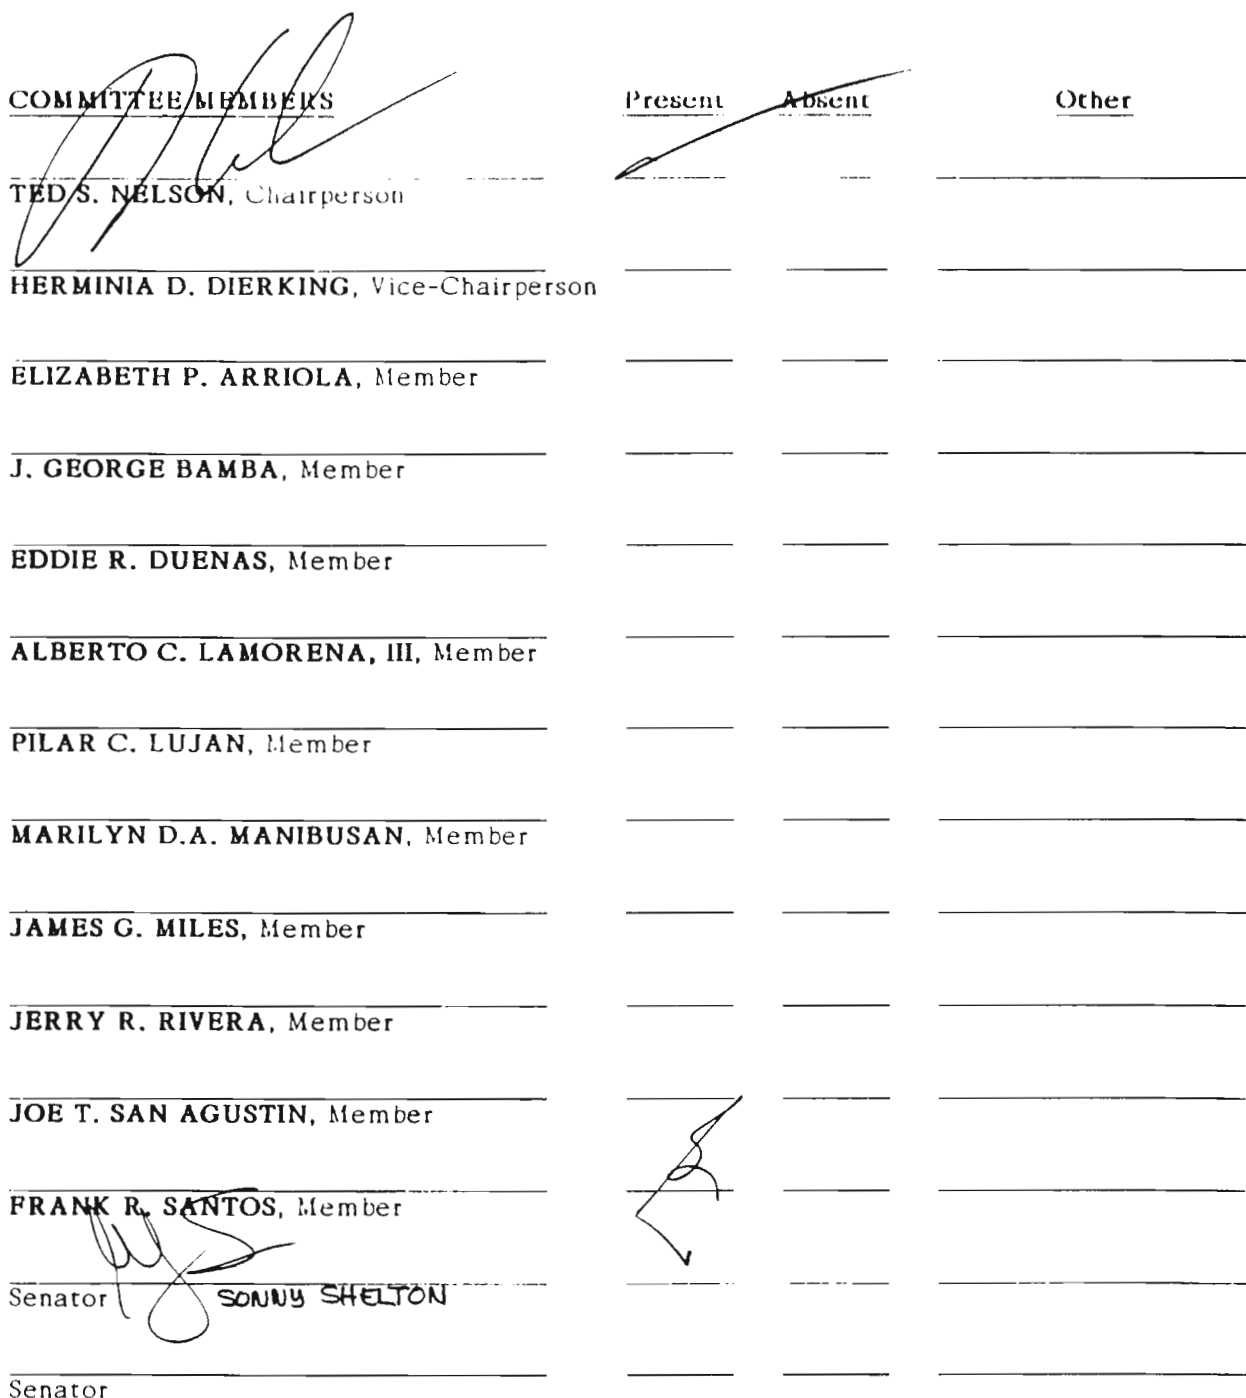 COMMITTEE MEMBERS Present Absent Other
TED S. NELSON, Chairperson
HERMINIA D. DIERKING, Vice-Chairperson
ELIZABETH P. ARRIOLA, Member
J. GEORGE BAMBA, Member
EDDIE R. DUENAS, Member
ALBERTO C. LAMORENA, III, Member
PILAR C. LUJAN, Member
MARILYN D.A. MANIBUSAN, Member
JAMES G. MILES, Member
JERRY R. RIVERA, Member
JOE T. SAN AGUSTIN, Member
FRANK R. SANTOS, Member
Senator SONNY SHELTON
Senator